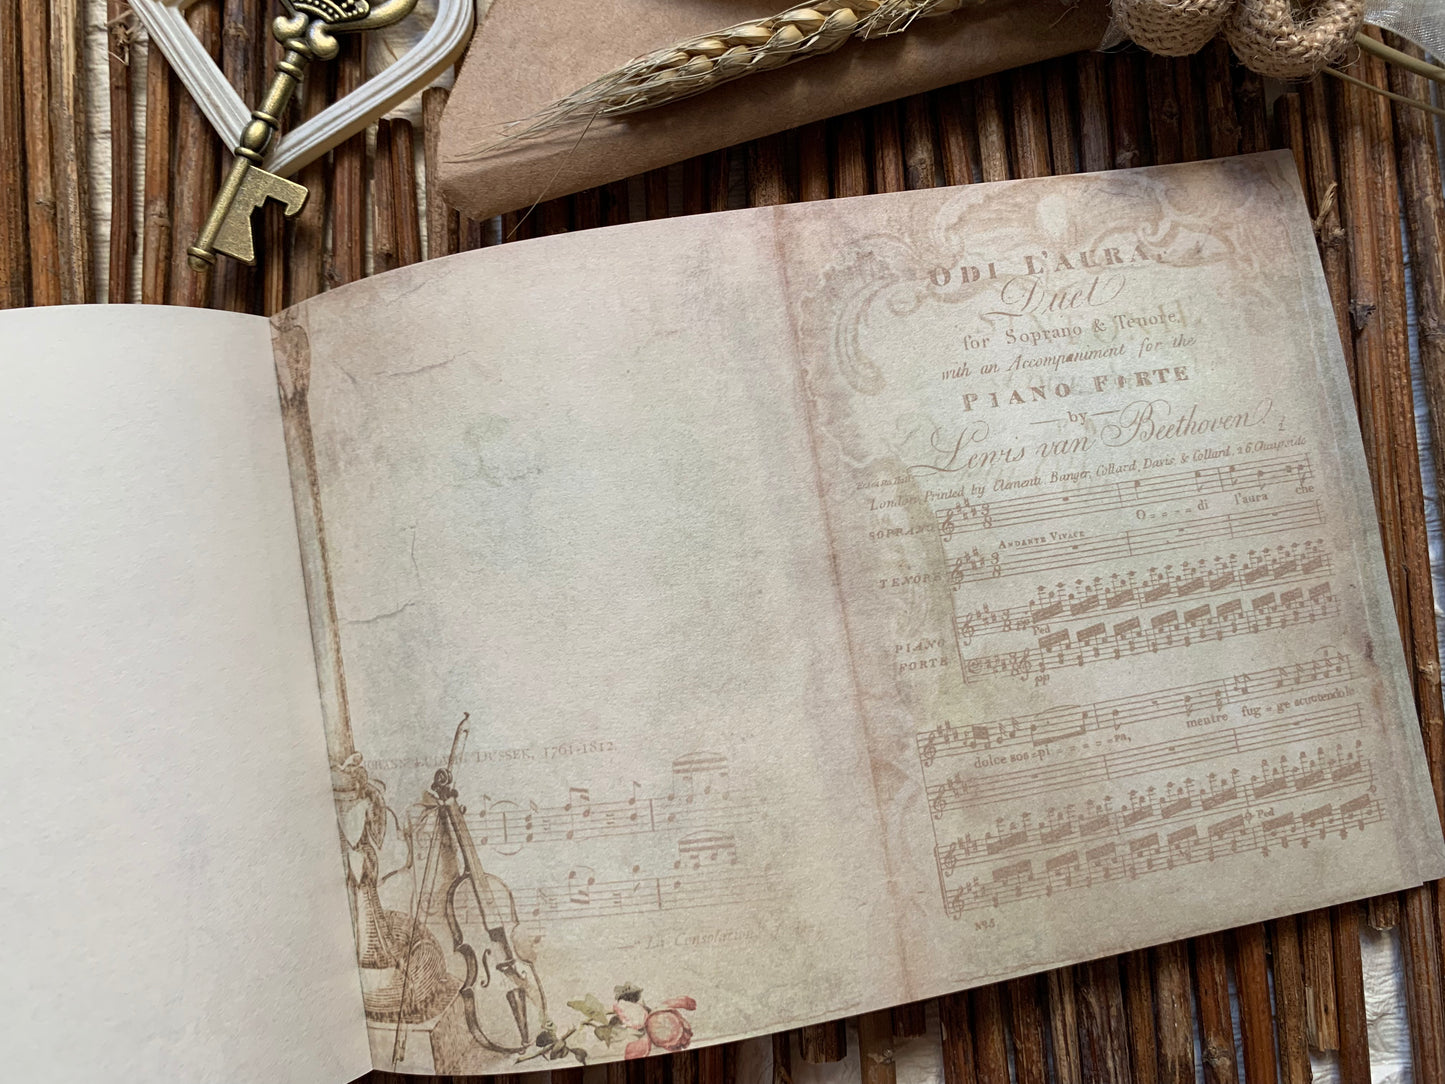 JOHANN LUDWIG DUSSEK, 1761-1812.
—" La Consolation,"
ODI L'AURA,
Duet
for Soprano & Tenore,
with an Accompaniment for the
PIANO FORTE
— by —
Lewis van Beethoven.
London, Printed by Clementi, Banger, Collard, Davis, & Collard, 26, Cheapside
SOPRANO
O - - - - di l'aura che
ANDANTE VIVACE
TENORE
pp Ped
PIANO
FORTE
pp
dolce sos - pi - - - - - ra, mentre fug - ge scuotendole
Ped
Nº.5